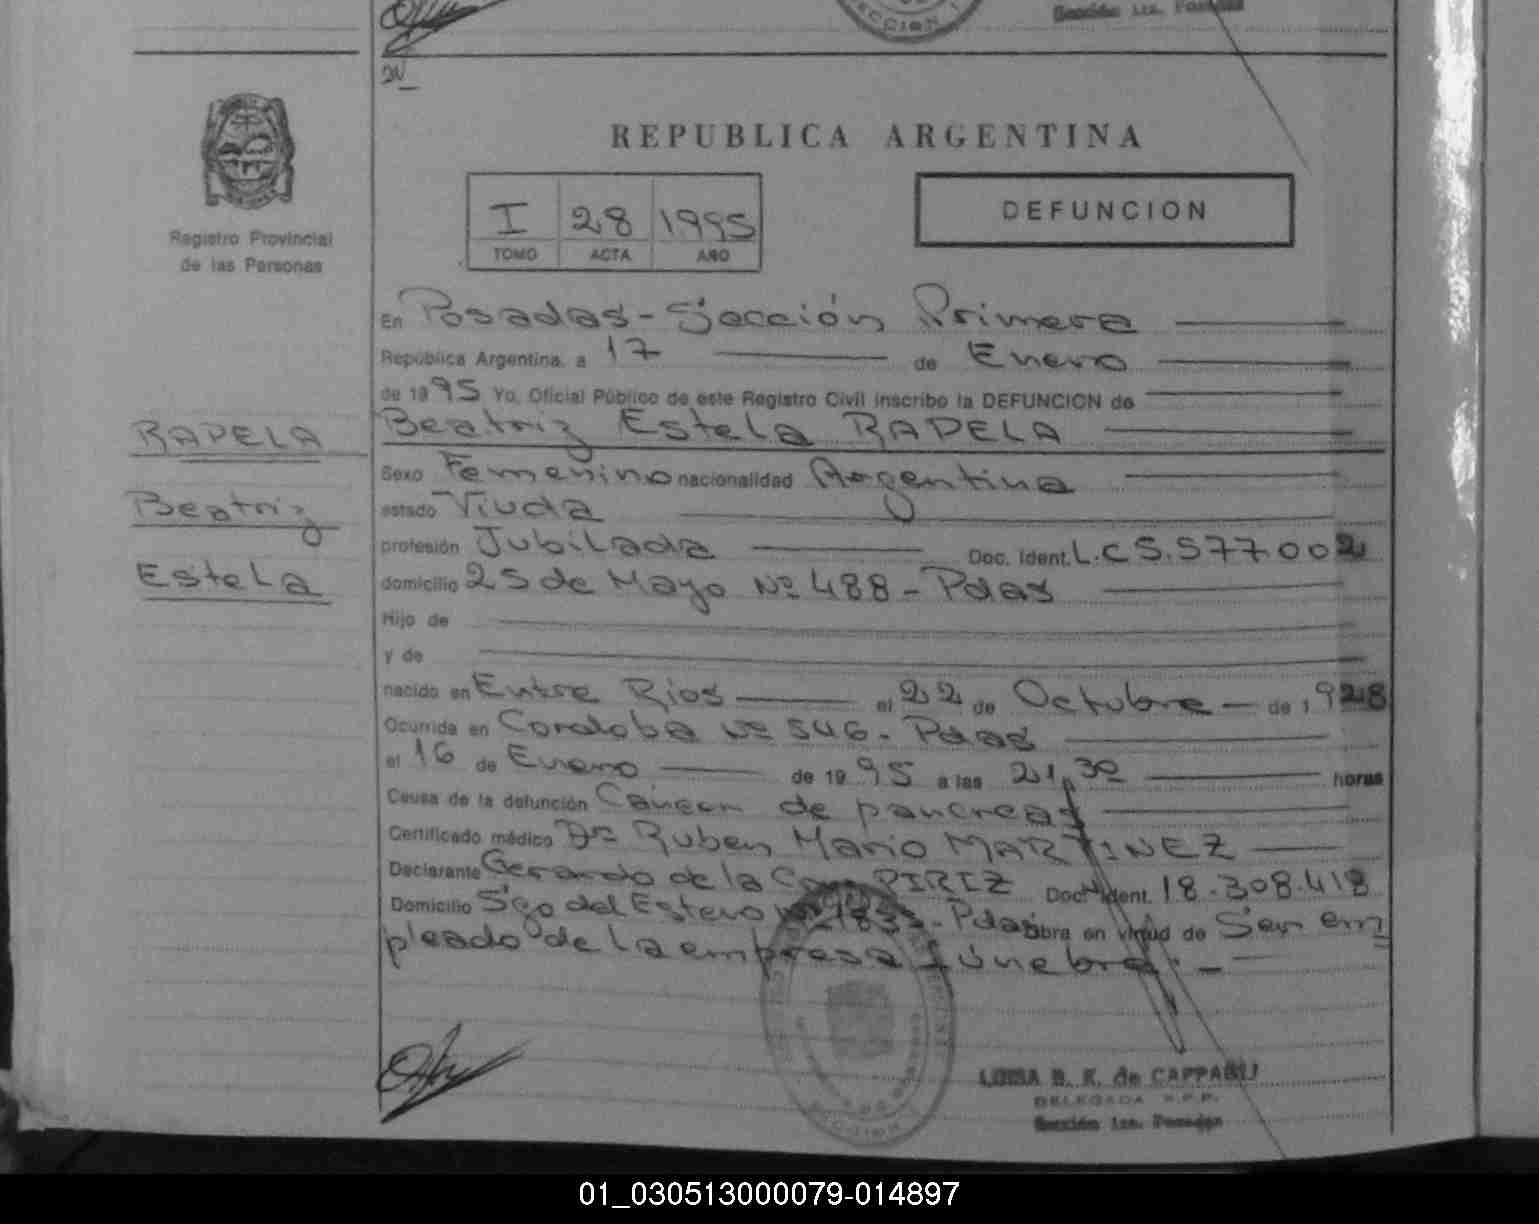 Sección 1ra. Posadas
REPUBLICA ARGENTINA
I 28 1995
TOMO ACTA AÑO
DEFUNCION
Registro Provincial
de las Personas
En Posadas - Sección Primera
República Argentina, a 17 de Enero
de 1995 Yo, Oficial Público de este Registro Civil inscribo la DEFUNCION de
RAPELA
Beatriz Estela RAPELA
Sexo Femenino nacionalidad Argentina
Beatriz
estado Viuda
profesión Jubilada Doc. Ident. L.C 5.577.002
Estela
domicilio 25 de Mayo Nº 488 - Pdas
Hijo de
y de
nacido en Entre Rios el 22 de Octubre de 1928
Ocurrida en Cordoba Nº 546 - Pdas
el 16 de Enero de 1995 a las 21,30 horas
Causa de la defunción Cáncer de pancreas
Certificado médico Dr Ruben Mario MARTINEZ
Declarante Gerardo de la Cruz PIRIZ Doc. Ident. 18.308.418
Domicilio Sgo del Estero Nº 1833 - Pdas obra en virtud de Ser em
pleado de la empresa fúnebre.-
LUISA B. K. de CAPPARU
DELEGADA R.P.P.
Sección 1ra. Posadas
01_030513000079-014897